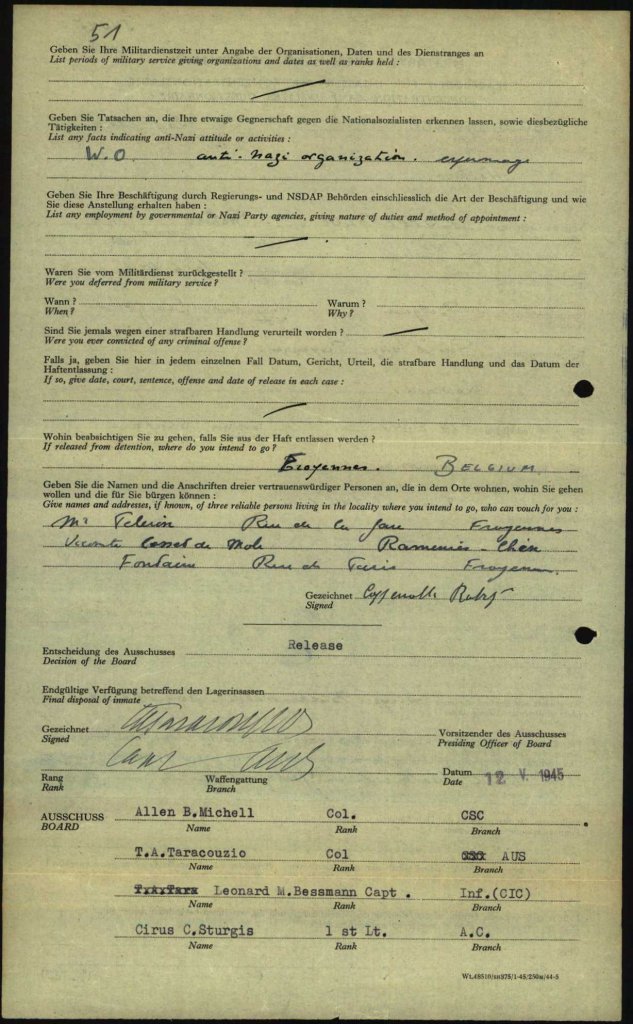 51
Geben Sie Ihre Militardienstzeit unter Angabe der Organisationen, Daten und des Dienstranges an
List periods of military service giving organizations and dates as well as ranks held :
Geben Sie Tatsachen an, die Ihre etwaige Gegnerschaft gegen die Nationalsozialisten erkennen lassen, sowie diesbezügliche
Tätigkeiten :
List any facts indicating anti-Nazi attitude or activities :
W.O anti-Nazi organization. espionage
Geben Sie Ihre Beschäftigung durch Regierungs- und NSDAP Behörden einschliesslich die Art der Beschäftigung und wie
Sie diese Anstellung erhalten haben :
List any employment by governmental or Nazi Party agencies, giving nature of duties and method of appointment :
Waren Sie vom Militärdienst zurückgestellt ?
Were you deferred from military service ?
Wann ? Warum ?
When ? Why ?
Sind Sie jemals wegen einer strafbaren Handlung verurteilt worden ?
Were you ever convicted of any criminal offense ?
Falls ja, geben Sie hier in jedem einzelnen Fall Datum, Gericht, Urteil, die strafbare Handlung und das Datum der
Haftentlassung :
If so, give date, court, sentence, offense and date of release in each case :
Wohin beabsichtigen Sie zu gehen, falls Sie aus der Haft entlassen werden ?
If released from detention, where do you intend to go ?
Froyennes. BELGIUM
Geben Sie die Namen und die Anschriften dreier vertrauenswürdiger Personen an, die in dem Orte wohnen, wohin Sie gehen
wollen und die für Sie bürgen können :
Give names and addresses, if known, of three reliable persons living in the locality where you intend to go, who can vouch for you :
Mr Rue de la Gare Froyennes
Vicomte de Ramenies - Chin
Fontaine Rue de Froyennes
Gezeichnet
Signed
Entscheidung des Ausschusses Release
Decision of the Board
Endgültige Verfügung betreffend den Lagerinsassen
Final disposal of inmate
Gezeichnet Vorsitzender des Ausschusses
Signed Presiding Officer of Board
Rang Waffengattung Datum 12 V. 1945
Rank Branch Date
AUSSCHUSS Allen B.Michell Col. CSC
BOARD Name Rank Branch
T.A.Taracouzio Col AUS
Name Rank Branch
Leonard M.Bessmann Capt . Inf.(CIC)
Name Rank Branch
Cirus C.Sturgis 1 st Lt. A.C.
Name Rank Branch
Wt.48510/SH375/1-45/250M/44-5